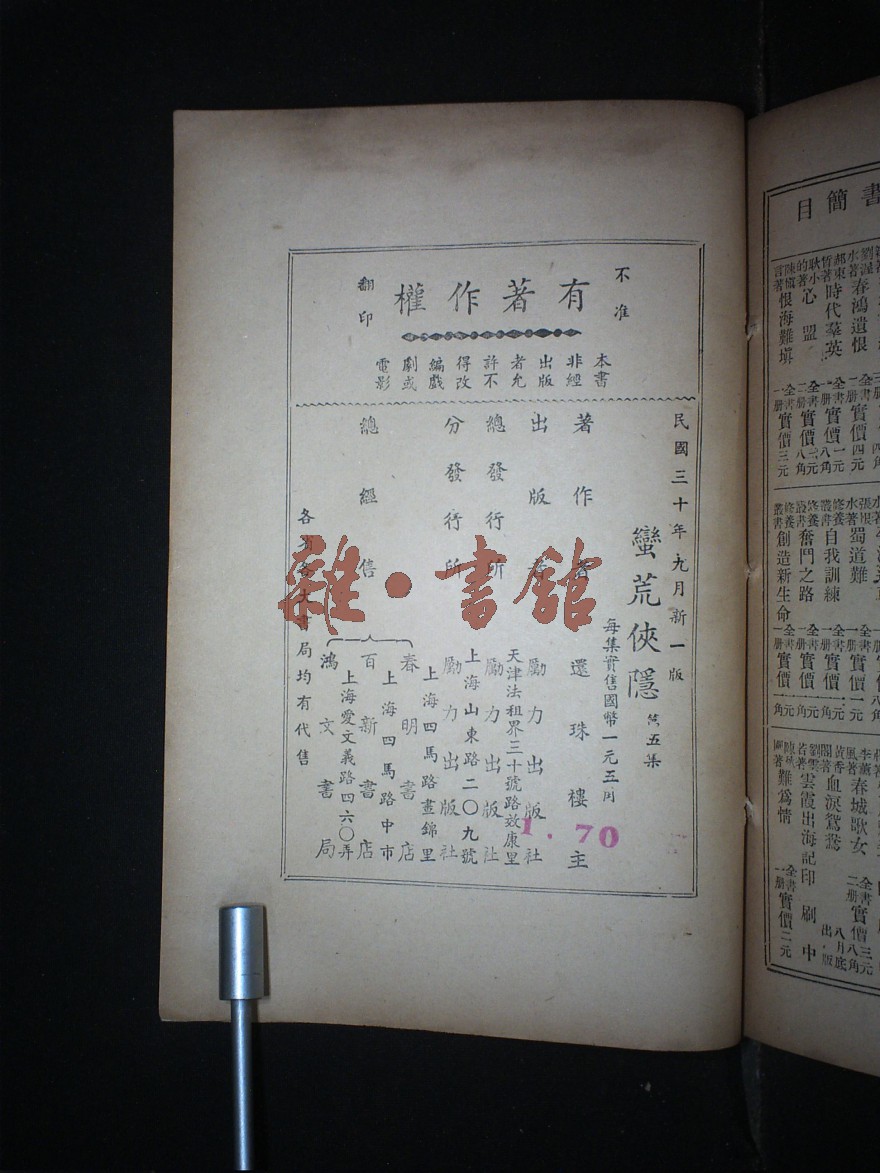 有著作權
不准
翻印
本書
非經
出版
者允
許不
得改
編戲
劇或
電影
民國三十年九月新一版
蠻荒俠隱 第五集
每集實售國幣一元五角
著作者 還珠樓主
出版者 勵力出版社
天津法租界三十號路效康里
總發行所 勵力出版社
上海山東路二〇九號
分發行所 勵力出版社
上海四馬路畫錦里
總經售
春明書店
上海四馬路中市
百新書店
上海愛文義路四六〇弄
鴻文書局
各省各大書局均有代售
1.70
雜·書館
書簡目
春鴻遺恨
時代羣英
耿小的著 心盟
恨海難填
全書一册實價三元
蜀道難
自我訓練
奮鬥之路
修養叢書 創造新生命
春城歌女
血淚鴛鴦
雲霞出海記 印刷中
難爲情
全書一册實價二元
八月底出版